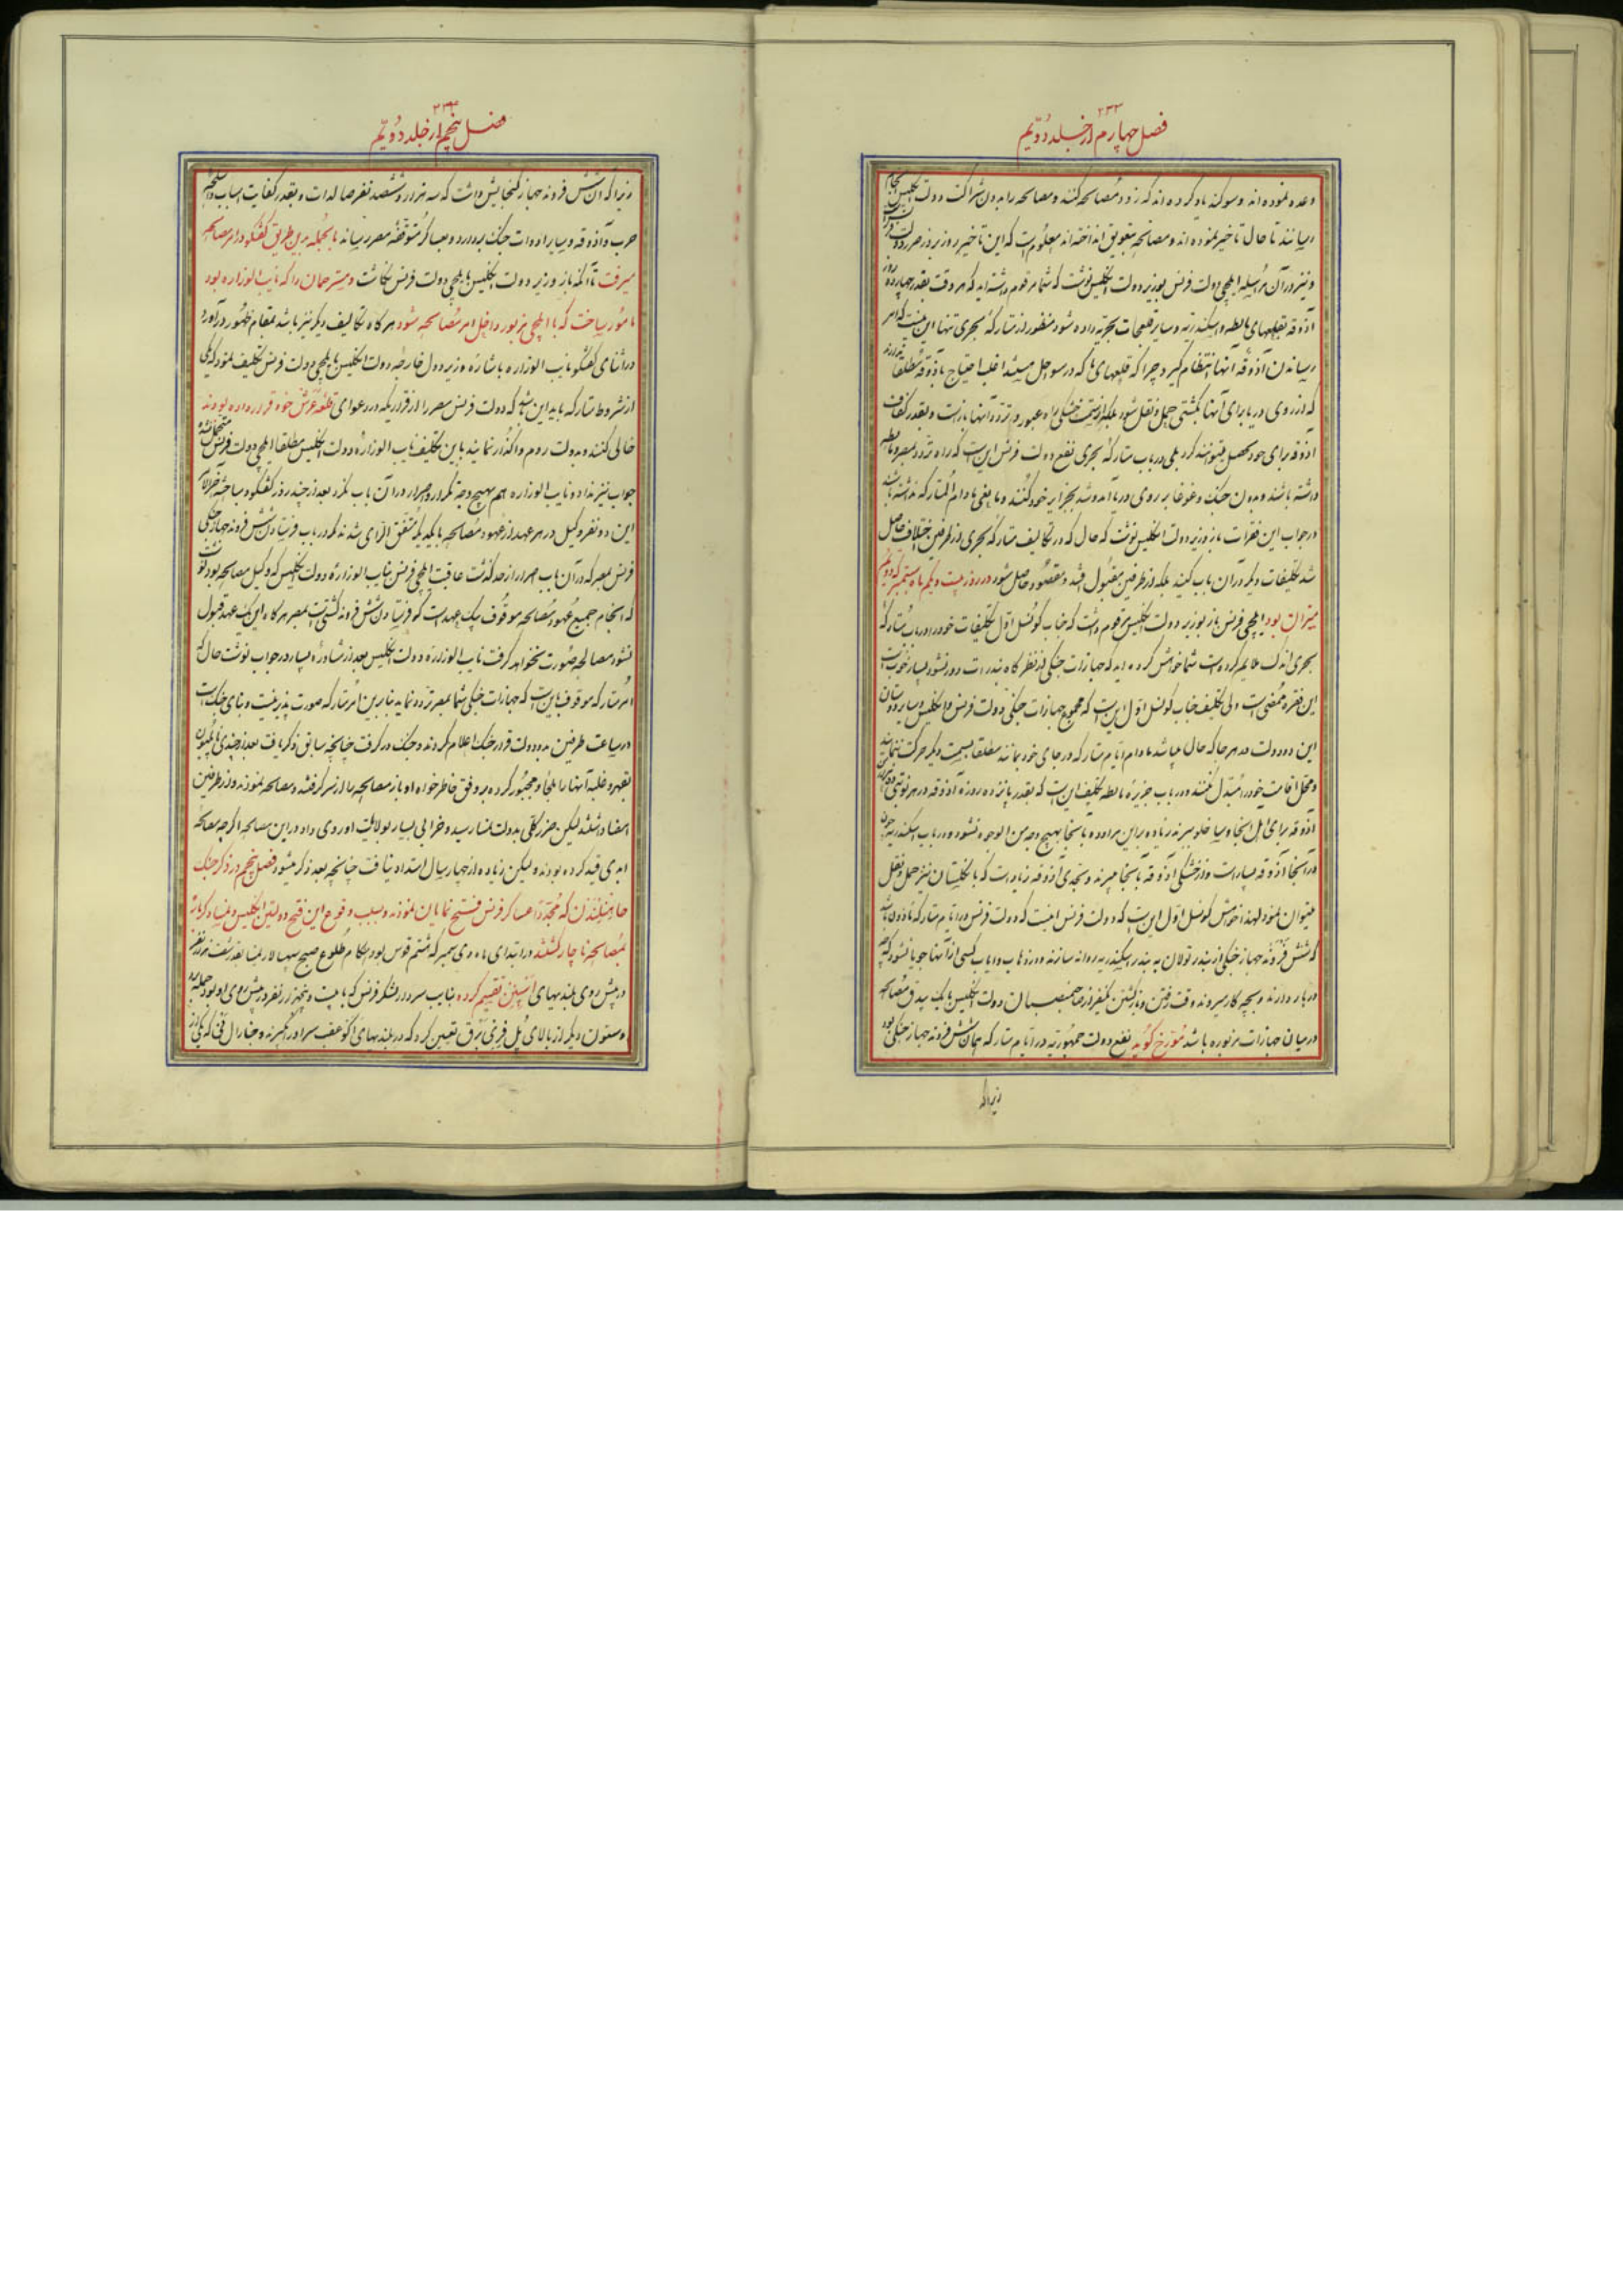 ۲۳۲
فصل چهارم از جلد دویم
وعده نموده اند و سوکند یاد کرده اند که زود مصالحه کنند و مصالحه را بدون شراکت دولت انکلیس بانجام
رسانند تا حال تاخیر نموده اند و مصالحه بتعویق انداخته اند معلوم است که این تاخیر روز بروز ضرر دولت
و نیز در آن مرسله ایلچی دولت فرنس بوزیر دولت انکلیس نوشت که شما مرقوم داشته اید که هر وقت بقدر چهارده روز
آذوقه بقلعهای مالطه و اسکندریه و سایر قلعجات بحریه داده شود منظور از متارکهٔ بحری تنها این نیست که امر
رسانیدن آذوقه آنها انتظام کیرد چرا که قلعهای ما که در سواحل میباشد اغلب احتیاج بآذوقه مطلقا ندارند
که از روی دریا برای آنها بکشتی حمل و نقل شود بلکه از سمت خشکی راه عبور و تردد آنها باز است و بقدر کفاف
آذوقه برای خود تحصیل میتوانند کرد بلی در باب متارکهٔ بحری نفع دولت فرنس این است که راه تردد بمصر و مالطه
داشته باشند و بدون جنک و غوغا بر روی دریا آمد و شد بجزایر خود کنند و مانعی مادام المتارکه نداشته باشند
در جواب این فقرات باز وزیر دولت انکلیس نوشت که حال که در تکالیف متارکهٔ بحری از طرفین اختلاف حاصل
شد تکلیفات دیکر در آن باب کنید بلکه از طرفین مقبول افتد و مقصود حاصل شود در روز بیست و یکم ماه سپتمبر که دویم
میزان بود ایلچی فرنس باز بوزیر دولت انکلیس مرقوم داشت که جناب کونسل اول تکلیفات خود را در باب متارکهٔ
بحری اندک ملایم کرده است شما خواهش کرده اید که جهازات جنکی از نظر کاه بندرات دور نشود بسیار خوب است
این فقره ممضی است ولی تکلیف جناب کونسل اول این است که مجموع جهازات جنکی دولت فرنس و انکلیس و سایر دوستان
این دو دولت در هر جا که حال میباشد مادام ایام متارکه در جای خود بمانند مطلقا بسمت دیکر حرکت ننمایند
و محل اقامت خود را مبدل نکنند و در باب جزیرهٔ مالطه تکلیف این است که بقدر پانزده روزه آذوقه در هر نوبتی
آذوقه برای اهل آنجا و ساخلو ببرند زیاده بر این مراوده بآنجا بهیچ وجه من الوجوه نشود و در باب اسکندریه چون
در آنجا آذوقه بسیار است و از خشکی آذوقه بآنجا میبرند و بحدی آذوقه زیاد است که بانکلستان نیز حمل و نقل
میتوان نمود لهذا خواهش کونسل اول این است که دولت فرنس امنیت که دولت فرنس در ایام متارکه ماذون باشد
که شش فروند جهاز جنکی از بندر تولان به بندر اسکندریه روانه سازند و در ذهاب و ایاب کسی از آنها جویا نشود که چه
در بار دارند و بچه کار میروند وقت رفتن و بازکشتن یکنفر از صاحبمنصبان دولت انکلیس با یک بیدق مصالحه
در میان جهازات مزبوره باشد مورخ کوید نفع دولت جمهوریه در ایام متارکه همان شش فروند جهاز جنکی بود
زیرا که
فصل پنجم از جلد دویم
زیرا که آن شش فروند جهاز کنجایش داشت که سه هزار و ششصد نفر صالدات و بقدر کفایت اسباب و اسلحه
حرب و آذوقه و سایر ادوات جنک بردارد و بعساکر متوقفهٔ مصر رساند بالجمله بدین طریق کفتکو در امر مصالحه
میرفت تا آنکه باز وزیر دولت انکلیس بایلچی دولت فرنس نکاشت و مستر همان را که نایب الوزاره بود
مامور ساخت که با ایلچی مزبور داخل امر مصالحه شود هر کاه تکالیف دیکر نیز باشد بمقام ظهور درآورد
در اثنای کفتکو نایب الوزاره باشارهٔ وزیر دول خارجه دولت انکلیس بایلچی دولت فرنس تکلیف نمود که یکی
از شروط متارکه باید این باشد که دولت فرنس مصر را از قراریکه در دعوای قلعه عرش خود قرار داده بودند
خالی کنند و بدولت روم واکذار نمایند باین تکلیف نایب الوزارهٔ دولت انکلیس مطلقا ایلچی دولت فرنس متحمل نشد
جواب نیز نداد و نایب الوزاره هم بهیچ وجه تکرار و اصرار در آن باب نکرد بعد از چند روز کفتکو و مباحثه آخرالامر
این دو نفر وکیل در هر عهد از عهود مصالحه با یکدیکر متفق الرای شدند مکر در باب فرستادن شش فروند جهاز جنکی
فرنس بمصر که در آن باب اصرار از حد کذشت عاقبت ایلچی فرنس بنایب الوزارهٔ دولت انکلیس که وکیل مصالحه بود نوشت
که انجام جمیع عهود مصالحه موقوف بیک عهد است که فرستادن شش فروند کشتی است بمصر هر کاه این یک عهد قبول
نشود مصالحه صورت نخواهد کرفت نایب الوزاره دولت انکلیس بعد از مشاورهٔ بسیار در جواب نوشت حال که
امر متارکه موقوف باین است که جهازات جنکی شما بمصر تردد نماید بنابرین امر متارکه صورت پذیر نیست و بنای جنک است
در ساعت طرفین دو دولت قرار جنک اعلام کردند و جنک درکرفت چنانچه سابق ذکر یافت بعد از چندی ناپلیون
بقهر و غلبه آنها را ملجا و مجبور کرده بر وفق خاطرخواه او باز مصالحه را از سر کرفتند و مصالحه نمودند و از طرفین
امضا داشتند لیکن ضرر کلی بدولت نمسا رسید و خرابی بسیار بولایات او روی داد و در این مصالحه اکرچه مصالحه
ابدی قید کرده بودند ولیکن زیاده از چهار سال امتداد نیافت چنانچه بعد ذکر میشود فصل پنجم در ذکر جنک
هاهنلندن که مجددا عساکر فرنس فتح نمایان نمودند و بسبب وقوع این فتح دولتین انکلیس و نمسا دیکر باره
بمصالحه ناچار کشتند در ابتدای ماه دی سمبر که ششم قوس بود هنکام طلوع صبح سپهسالار نمسا بقدر شصت هزار نفر
در پیش روی بلندیهای تقسیم کرده نایب سردار لشکر فرنس که با بیست و پنجهزار نفر در پیش روی او بود حمله برد
و ستون دیکر از بالای پل تعیین کرد که در بلندیهای عقب سر او را بکیرند و جنارال نی که یکی از